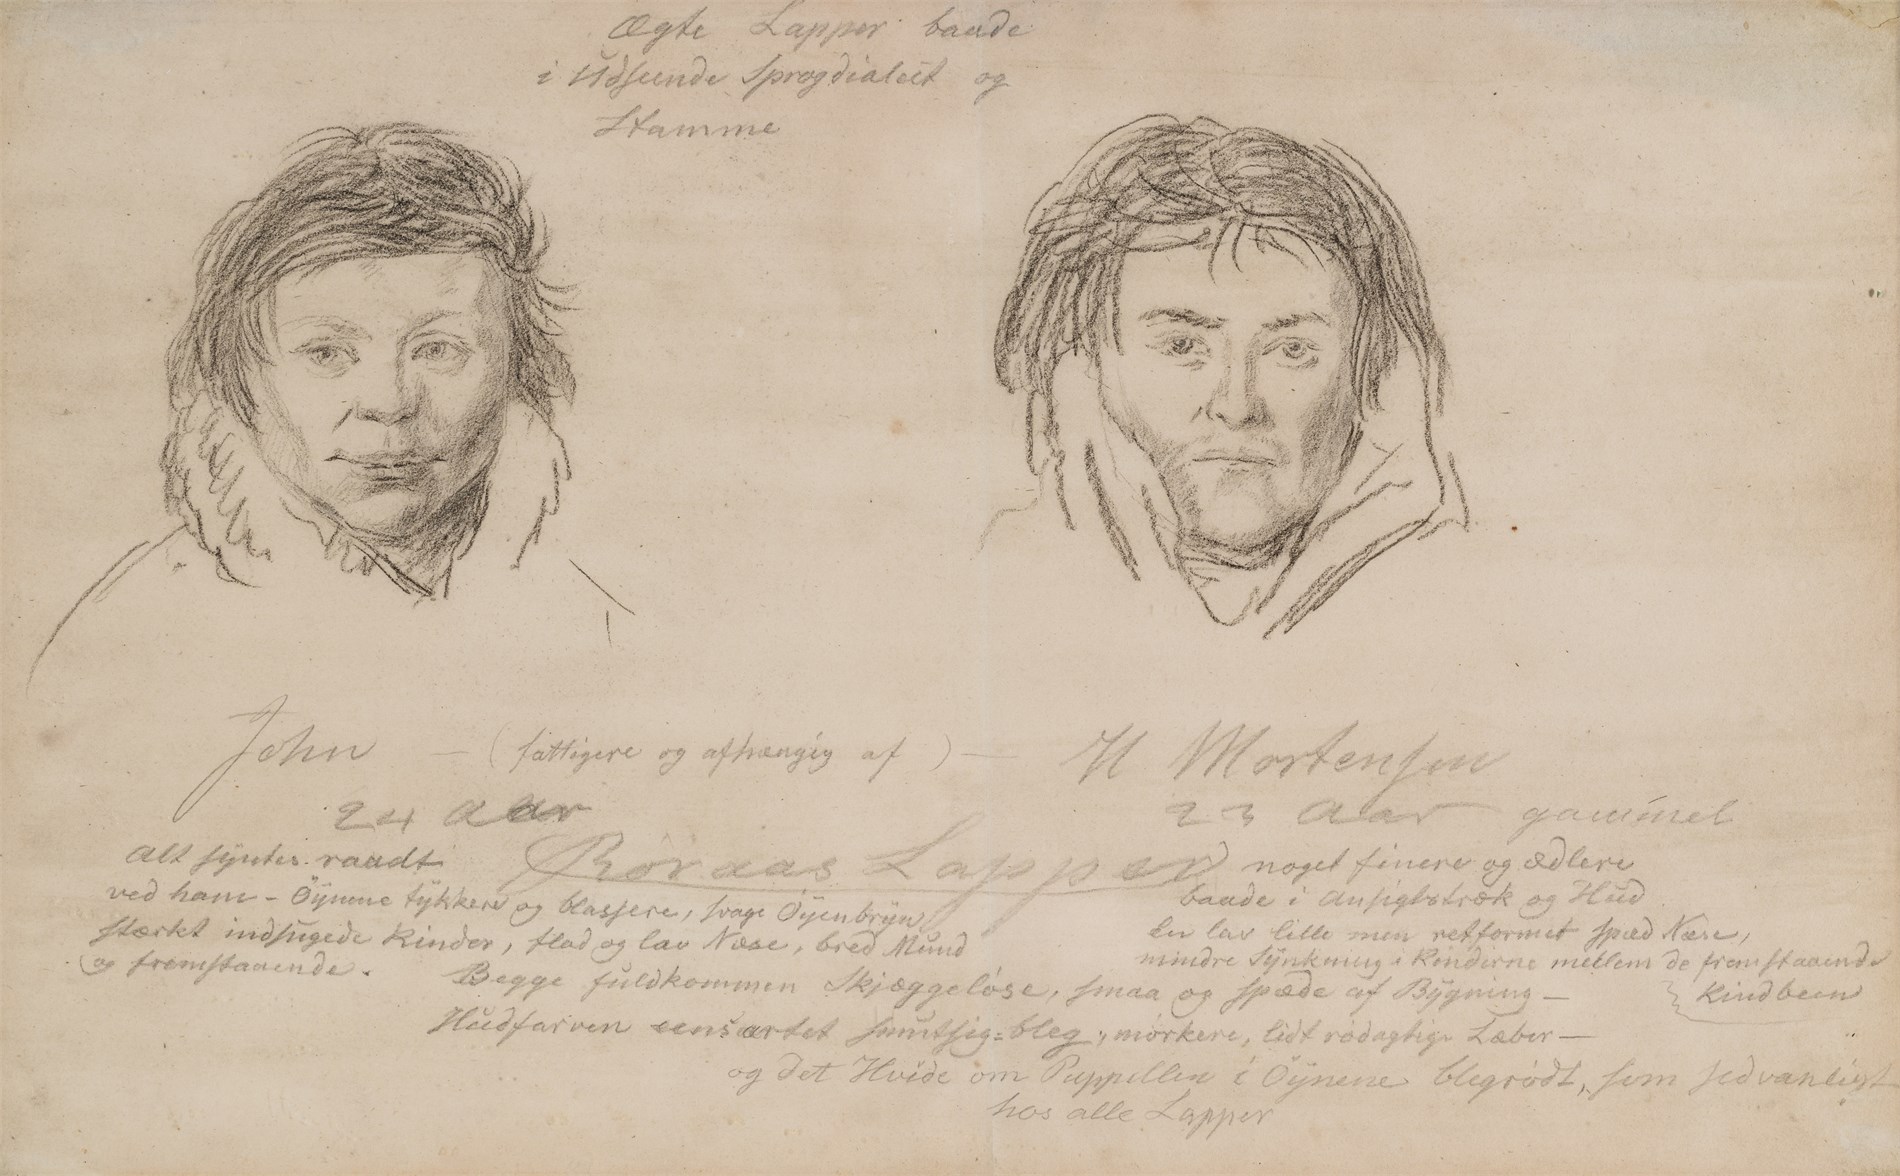 Ægte Lapper baade
i Udseende Sprogdialect og
Stamme
John — (fattigere og afhængig af) — H Mortensen
24 Aar
23 Aar gammel
Røraas Lapper
alt syntes raadt
ved ham - Öÿnene tÿkkere og blassere, svage Öÿenbrÿn,
stærkt indsugede Kinder, flad og lav Næse, bred Mund
og fremstaaende.
noget finere og ædlere
baade i Ansigtstræk og Hud
En lav lille men retformet spæd Næse,
mindre Sÿnkning i Kinderne mellem de fremstaaende
Kindbeen
Begge fuldkommen Skjæggeløse, smaa og spæde af Bÿgning —
Hudfarven eensartet smutsig=bleg, mørkere, lidt rødagtige Læber —
og det Hvide om Puppillen i Öÿnene blegrødt, som sedvanligt
hos alle Lapper